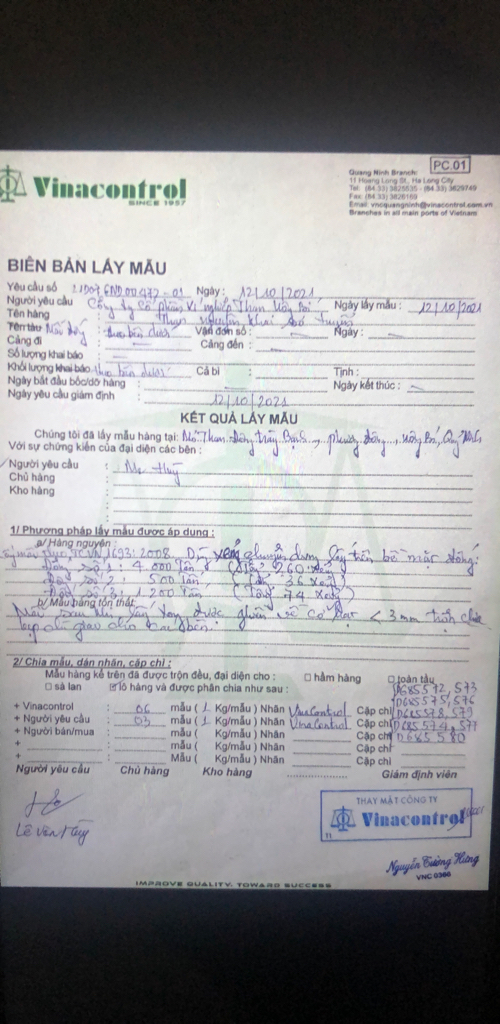 PC.01
Vinacontrol
SINCE 1957
Quang Ninh Branch:
11 Hoang Long St., Ha Long City
Tel: (84.33) 3825535 - (84.33) 3829749
Fax: (84.33) 3826169
Email: vncquangninh@vinacontrol.com.vn
Branches in all main ports of Vietnam
BIÊN BẢN LẤY MẪU
Yêu cầu số Ngày: 12/10/2021
Người yêu cầu : Công ty Cổ phần Xí nghiệp Than Uông Bí Ngày lấy mẫu : 12/10/2021
Tên hàng : Than nguyên khai
Tên tàu : theo bên dưới Vận đơn số : Ngày :
Cảng đi : Cảng đến :
Số lượng khai báo :
Khối lượng khai báo : theo bên dưới Cả bì : Tịnh :
Ngày bắt đầu bốc/dỡ hàng : Ngày kết thúc :
Ngày yêu cầu giám định : 12/10/2021
KẾT QUẢ LẤY MẪU
Chúng tôi đã lấy mẫu hàng tại: Phương Đông, Uông Bí, Quảng Ninh
Với sự chứng kiến của đại diện các bên :
Người yêu cầu : Mr Thủy
Chủ hàng :
Kho hàng :
1/ Phương pháp lấy mẫu được áp dụng :
a/ Hàng nguyên :
TCVN 1693: 2008. Dùng xẻng chuyên dụng lấy trên bề mặt đống:
Đống số 1: 4.000 Tấn 260
Đống số 2: 500 Tấn 36
Đống số 3: 1.200 Tấn 74
b/ Mẫu hàng tổn thất :
Mẫu sau khi lấy xong được nghiền về cỡ hạt < 3mm
2/ Chia mẫu, dán nhãn, cấp chì :
Mẫu hàng kể trên đã được trộn đều, đại diện cho : □ hầm hàng □ toàn tàu
□ sà lan ☑ lô hàng và được phân chia như sau : D685572, 573
D685575, 576
+ Vinacontrol : 06 mẫu ( 1 Kg/mẫu ) Nhãn VinaControl Cấp chì D685578, 579
+ Người yêu cầu : 03 mẫu ( 1 Kg/mẫu ) Nhãn VinaControl Cấp chì D685574, 577
+ Người bán/mua : mẫu ( Kg/mẫu ) Nhãn Cấp chì D685580
+ : mẫu ( Kg/mẫu ) Nhãn Cấp chì
+ : Mẫu ( Kg/mẫu ) Nhãn Cấp chì
Người yêu cầu Chủ hàng Kho hàng Giám định viên
THAY MẶT CÔNG TY
Vinacontrol
11
Lê Văn
Nguyễn Tường Hưng
VNC 0366
IMPROVE QUALITY, TOWARD SUCCESS